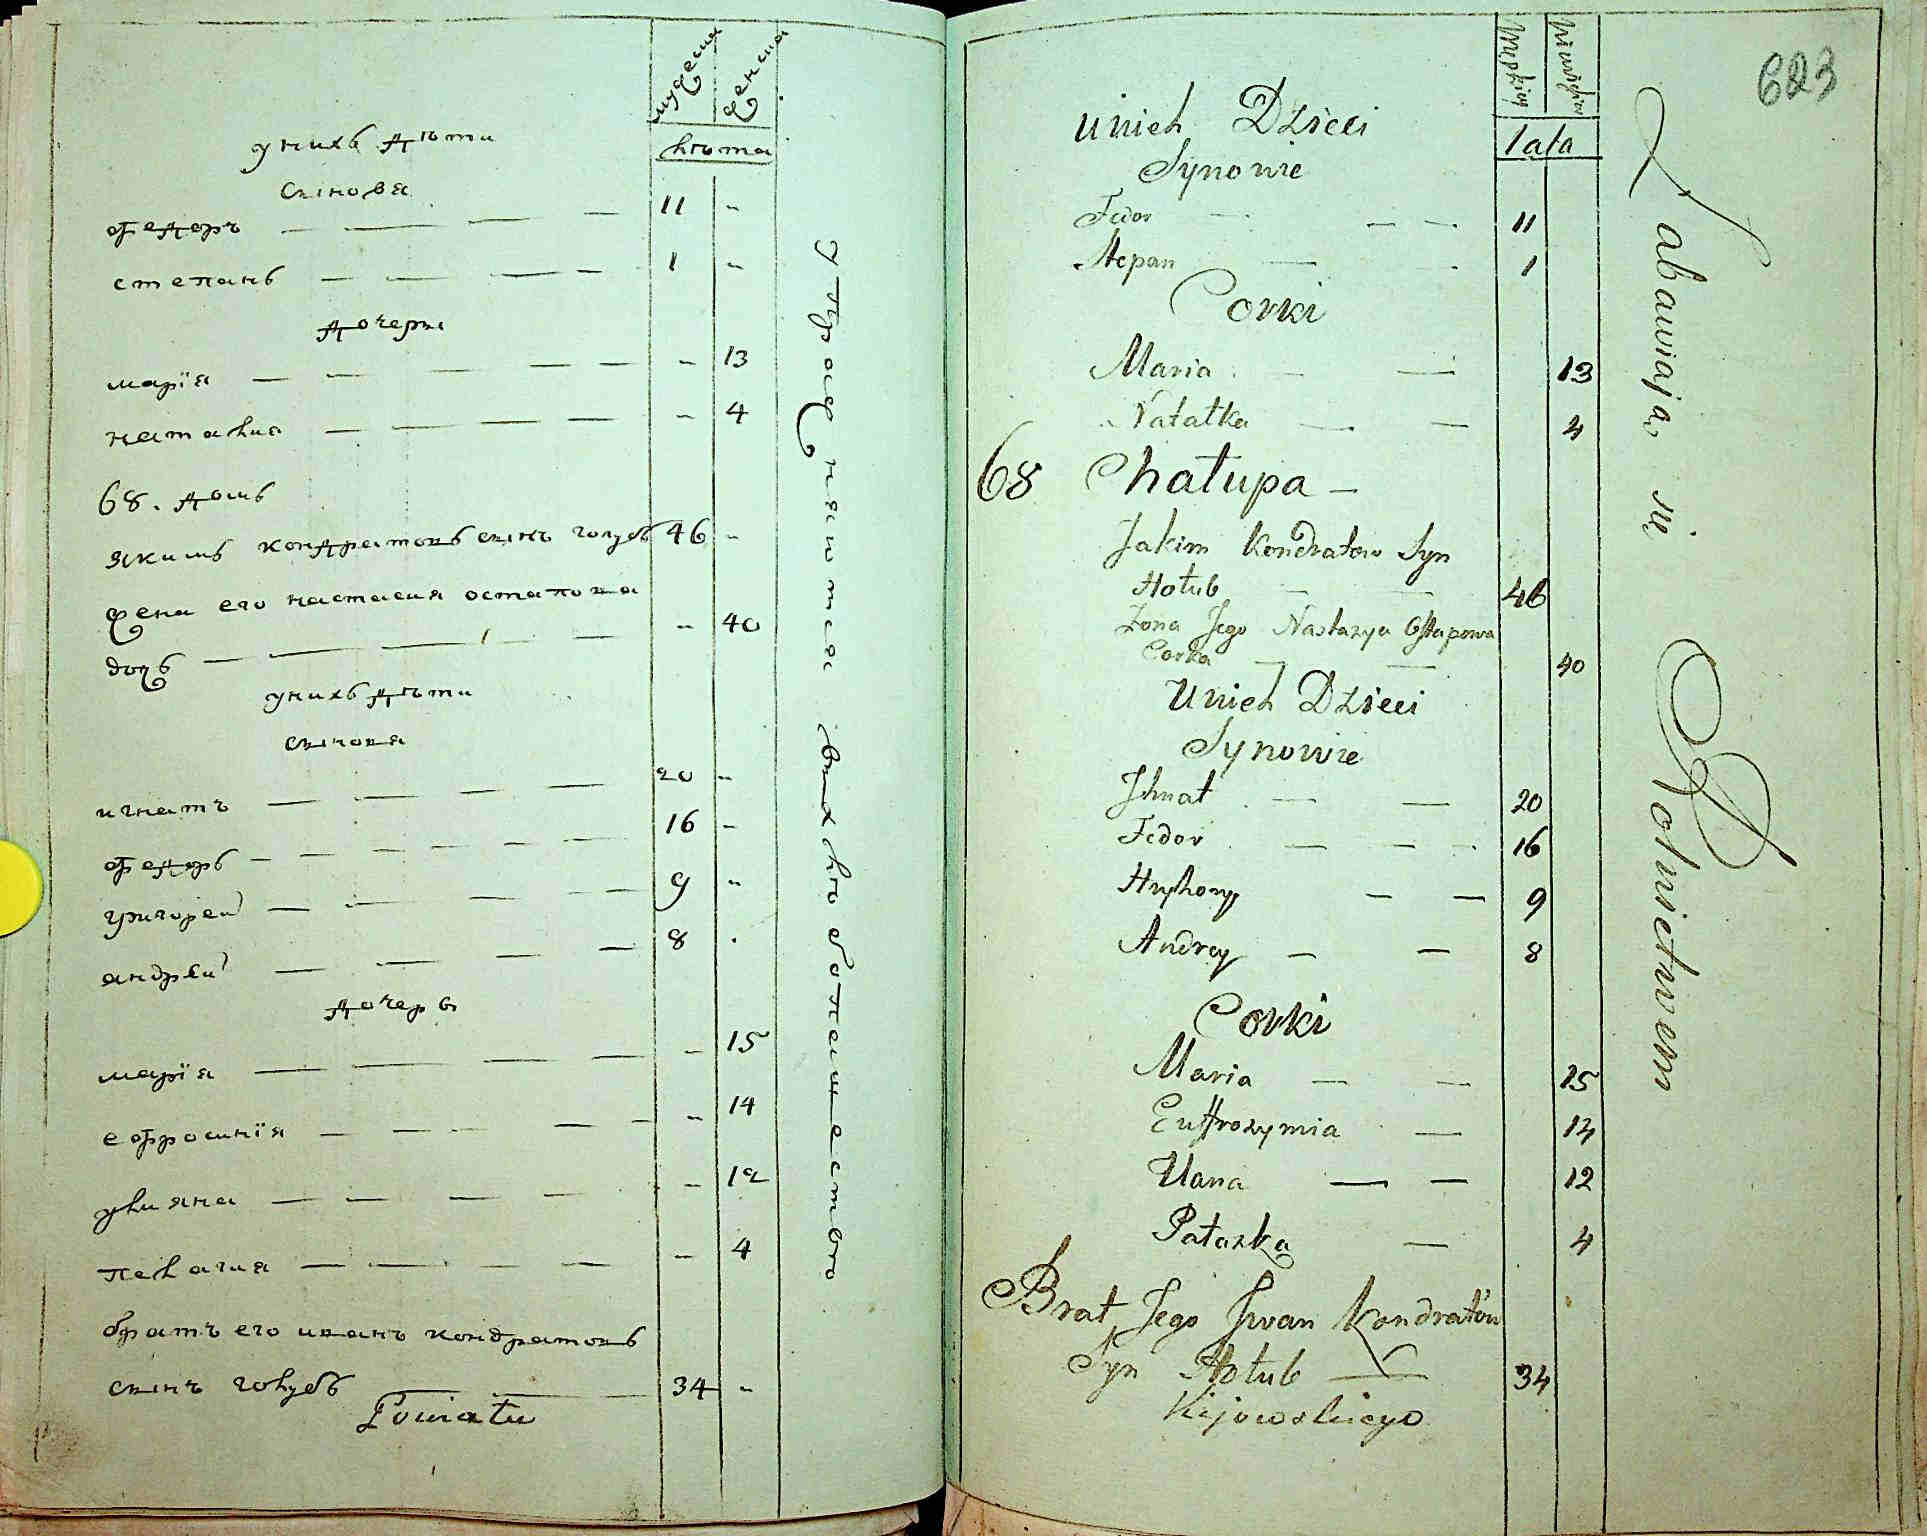 мужеска
женска
лѣта
у нихъ дѣти
сынова
федоръ — — — — 11 "
степанъ — — — — 1 "
дочеры
марія — — — — — " 13
наталия — — — — — " 4
68. домъ
якимъ кондратовъ сынъ голубъ 46 "
жена его настасия остапова
доцъ — — — — — " 40
у нихъ дѣти
сынова
игнатъ — — — — — 20 "
федоръ — — — — — — 16 "
григорей — — — — — 9 "
андрей — — — — — 8 "
дочеры
марія — — — — — " 15
ефросинія — — — — — " 14
улияна — — — — " 12
пелагия — — — — — " 4
братъ его иванъ кондратовъ
сынъ голубъ — — — 34 "
Powiatu
упражняются въ хлѣбопашество
623
męzkiey
lata
u nich Dzieci
Synowie
Fedor — — — 11
Stepan — — 1
Corki
Maria — — 13
Natałka — — 4
68 Chałupa —
Jakim Kondratow Syn
Hołub — — 46
Zona Jego Nastazya Ostapowa
Corka — — 40
U nich Dzieci
Synowie
Jhnat — — 20
Fedor — — — 16
Hryhory — — 9
Andrey — — 8
Corki
Maria — — 15
Euffrozymia — 14
Uana — — 12
Pałazka — 4
Brat Jego Jwan Kondratów
Syn Hołub — 34
Kijowskiego
Zabawiaią się Rolnictwem